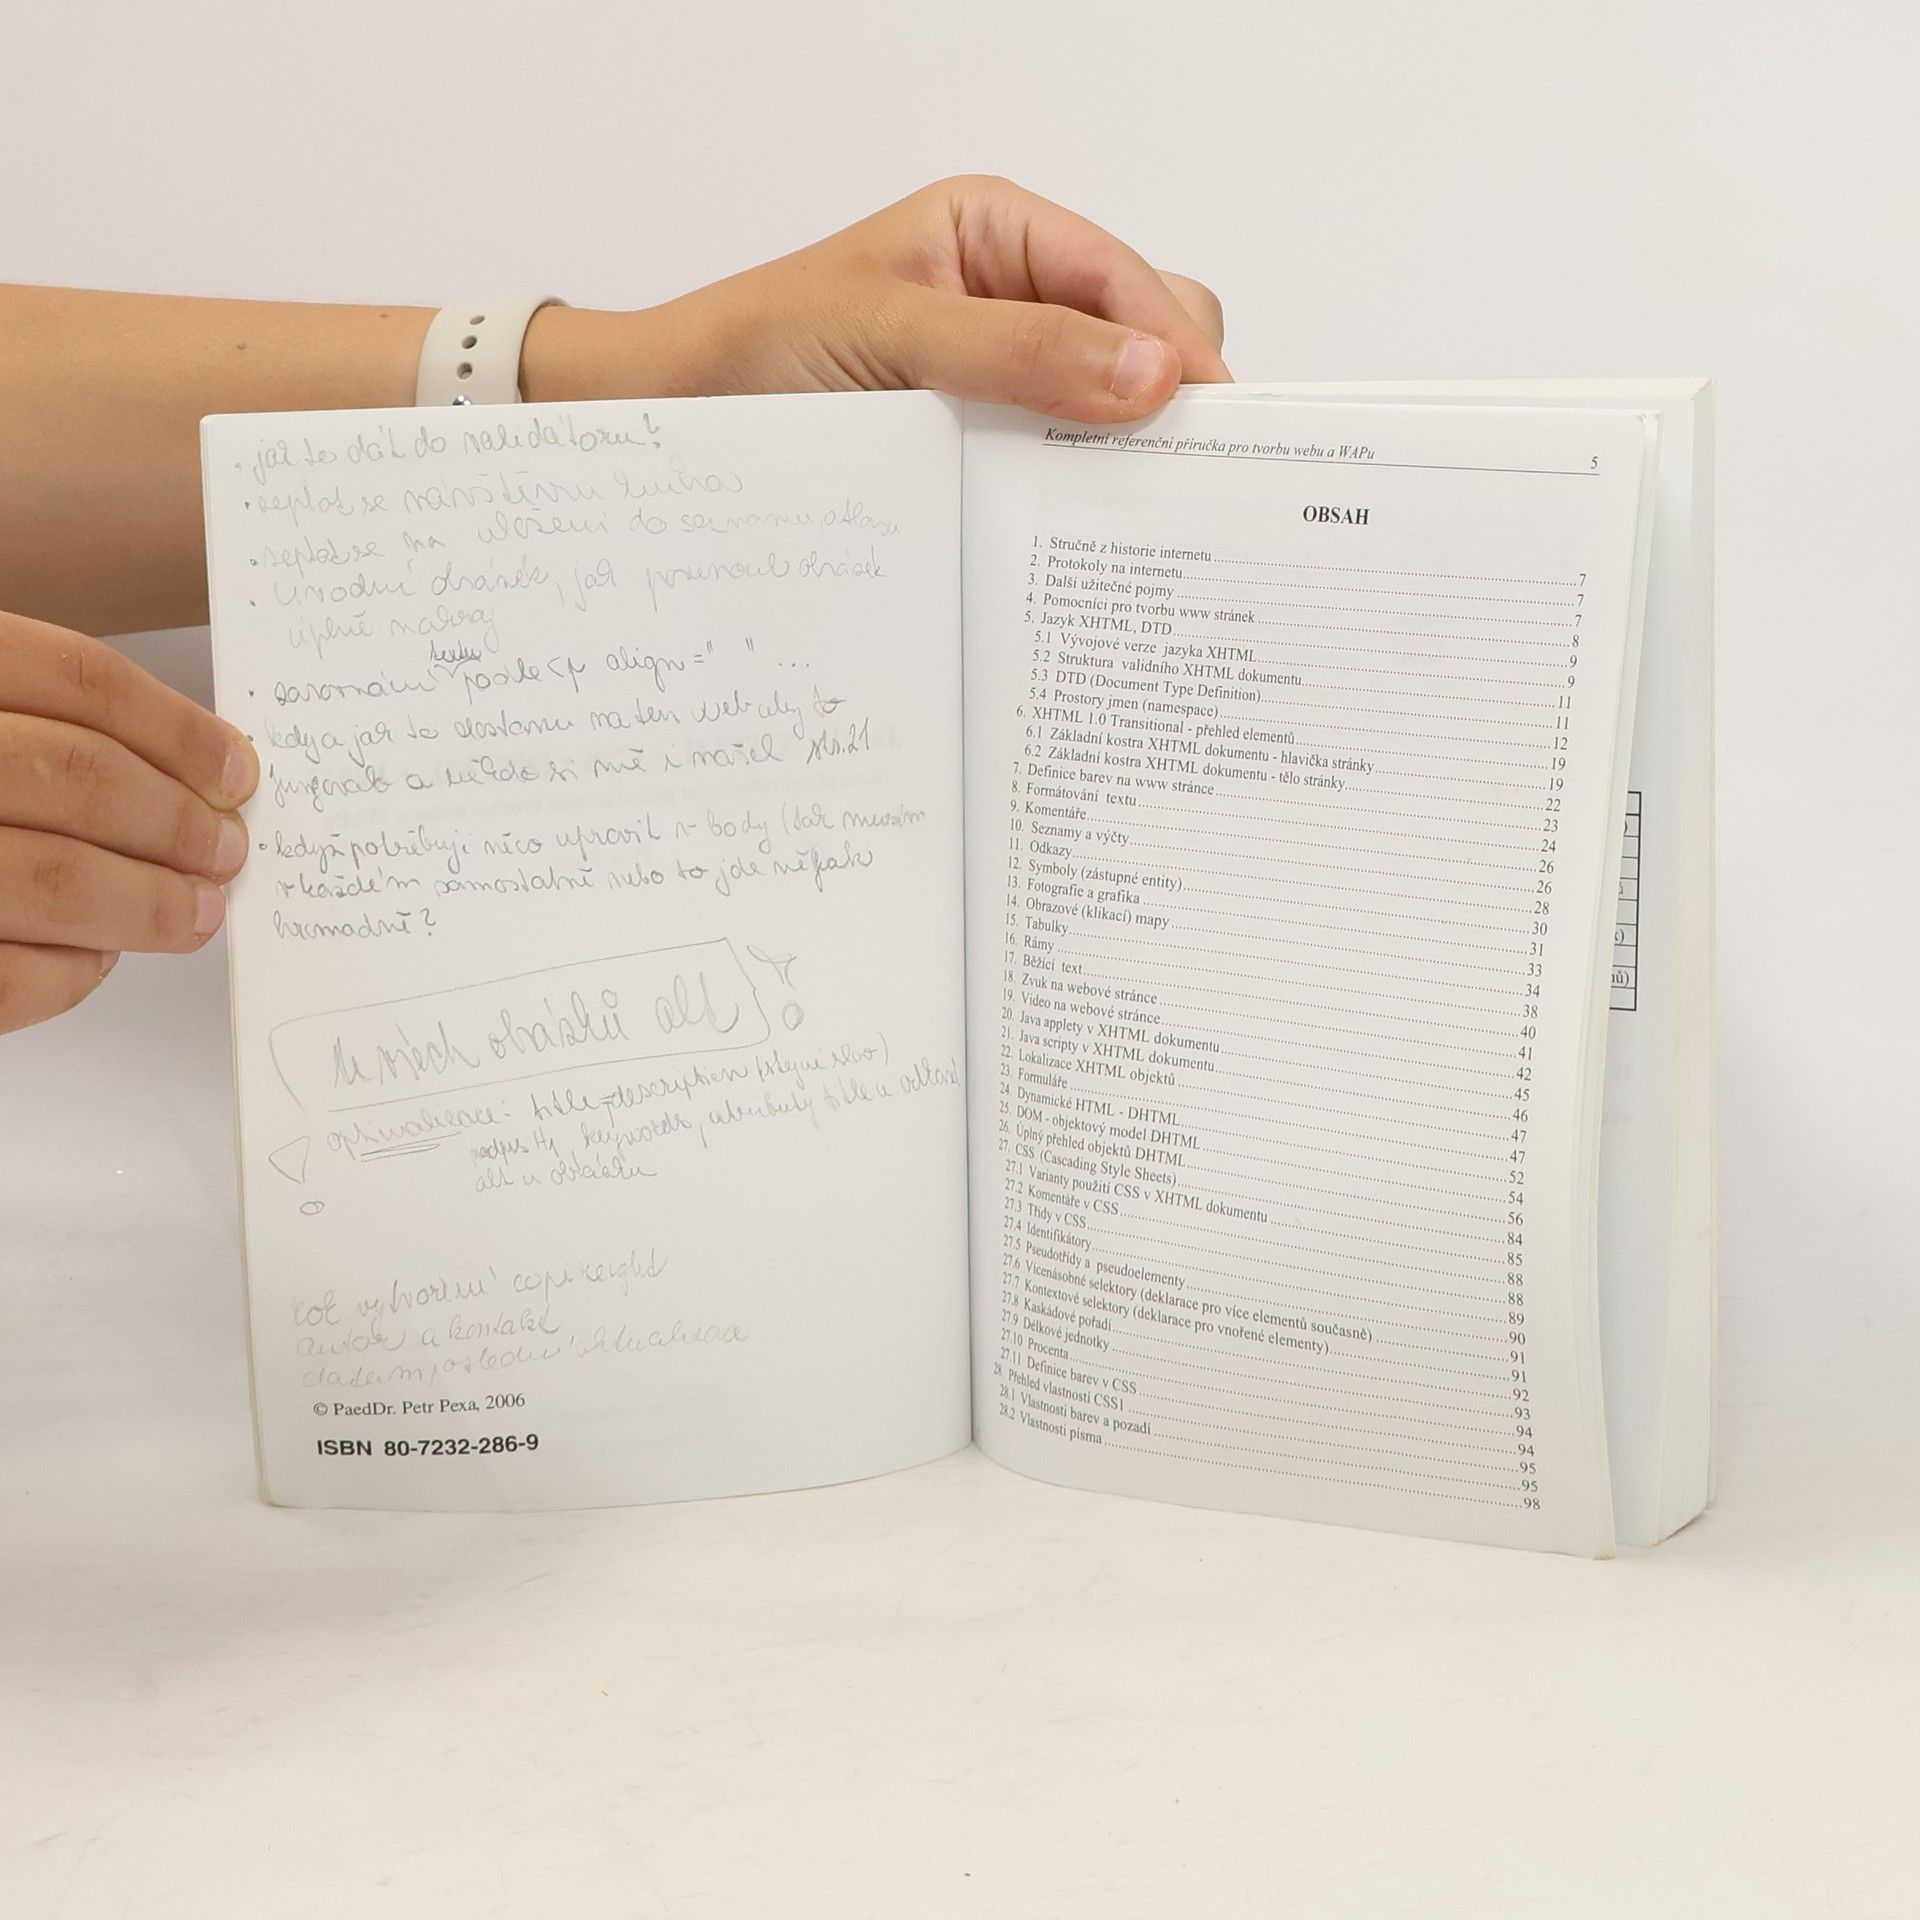 • jak to dát do validátoru?
• zeptat se návštěvní kniha
• zeptat se na vložení do seznamu, atlasu
• úvodní obrázek, jak posunout obrázek
úplně nakraj
• zarovnání textu podle <p align=" " ...
• kdy a jak to dostanu na ten web aby to
fungovalo a někdo si mě i našel str.21
• když potřebuji něco upravit v body (tak musím
v každém samostatně nebo to jde nějak
hromadně?
U všech obrázků alt
optimalizace: title=description (stejné slovo)
nadpis H1 keywords, atributy title u odkazů
alt u obrázku
rok vytvoření copireight
autor a kontakt
datum poslední aktualizace
© PaedDr. Petr Pexa, 2006
ISBN 80-7232-286-9
Kompletní referenční příručka pro tvorbu webu a WAPu 5
OBSAH
1. Stručně z historie internetu 7
2. Protokoly na internetu 7
3. Další užitečné pojmy 7
4. Pomocníci pro tvorbu www stránek 8
5. Jazyk XHTML, DTD 9
5.1 Vývojové verze jazyka XHTML 9
5.2 Struktura validního XHTML dokumentu 11
5.3 DTD (Document Type Definition) 11
5.4 Prostory jmen (namespace) 12
6. XHTML 1.0 Transitional - přehled elementů 19
6.1 Základní kostra XHTML dokumentu - hlavička stránky 19
6.2 Základní kostra XHTML dokumentu - tělo stránky 22
7. Definice barev na www stránce 23
8. Formátování textu 24
9. Komentáře 26
10. Seznamy a výčty 26
11. Odkazy 28
12. Symboly (zástupné entity) 30
13. Fotografie a grafika 31
14. Obrazové (klikací) mapy 33
15. Tabulky 34
16. Rámy 38
17. Běžící text 40
18. Zvuk na webové stránce 41
19. Video na webové stránce 42
20. Java applety v XHTML dokumentu 45
21. Java scripty v XHTML dokumentu 46
22. Lokalizace XHTML objektů 47
23. Formuláře 47
24. Dynamické HTML - DHTML 52
25. DOM - objektový model DHTML 54
26. Úplný přehled objektů DHTML 56
27. CSS (Cascading Style Sheets) 84
27.1 Varianty použití CSS v XHTML dokumentu 85
27.2 Komentáře v CSS 88
27.3 Třídy v CSS 88
27.4 Identifikátory 89
27.5 Pseudotřídy a pseudoelementy 90
27.6 Vícenásobné selektory (deklarace pro více elementů současně) 91
27.7 Kontextové selektory (deklarace pro vnořené elementy) 91
27.8 Kaskádové pořadí 92
27.9 Délkové jednotky 93
27.10 Procenta 94
27.11 Definice barev v CSS 94
28. Přehled vlastností CSS1 95
28.1 Vlastnosti barev a pozadí 95
28.2 Vlastnosti písma 98